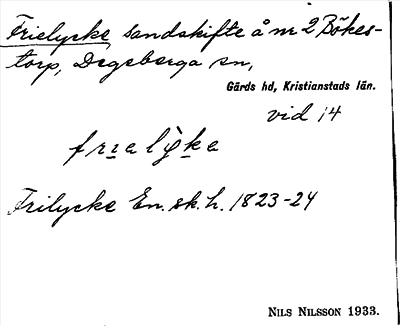 Frielycke sandskifte å nr 2 Bökes-
torp, Degeberga sn,
Gärds hd, Kristianstads län.
vid 14
Frilycke En. sk. h. 1823-24
NILS NILSSON 1933.